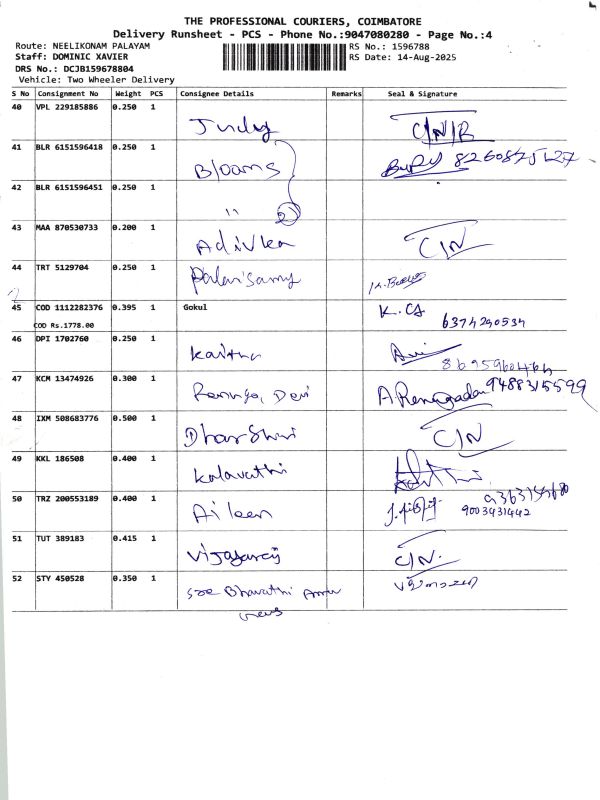 THE PROFESSIONAL COURIERS, COIMBATORE
Delivery Runsheet - PCS - Phone No.:9047080280 - Page No.:4
Route: NEELIKONAM PALAYAM RS No.: 1596788
Staff: DOMINIC XAVIER RS Date: 14-Aug-2025
DRS No.: DCJB159678804
Vehicle: Two Wheeler Delivery
S No Consignment No Weight PCS Consignee Details Remarks Seal & Signature
40 VPL 229185886 0.250 1
Judy C/N/R
41 BLR 6151596418 0.250 1
Blooms
42 BLR 6151596451 0.250 1
" 2
43 MAA 870530733 0.200 1
C/N
44 TRT 5129704 0.250 1
Palanisamy
45 COD 1112282376 0.395 1 Gokul
COD Rs.1778.00 6374290534
46 DPI 1702760 0.250 1
47 KCM 13474926 0.300 1
Devi 9488315599
48 IXM 508683776 0.500 1
Dharshini C/N
49 KKL 186508 0.400 1
Kalavathi
50 TRZ 200553189 0.400 1
Aileen 9003431442
51 TUT 389183 0.415 1
C/N.
52 STY 450528 0.350 1
Sree Bharathi